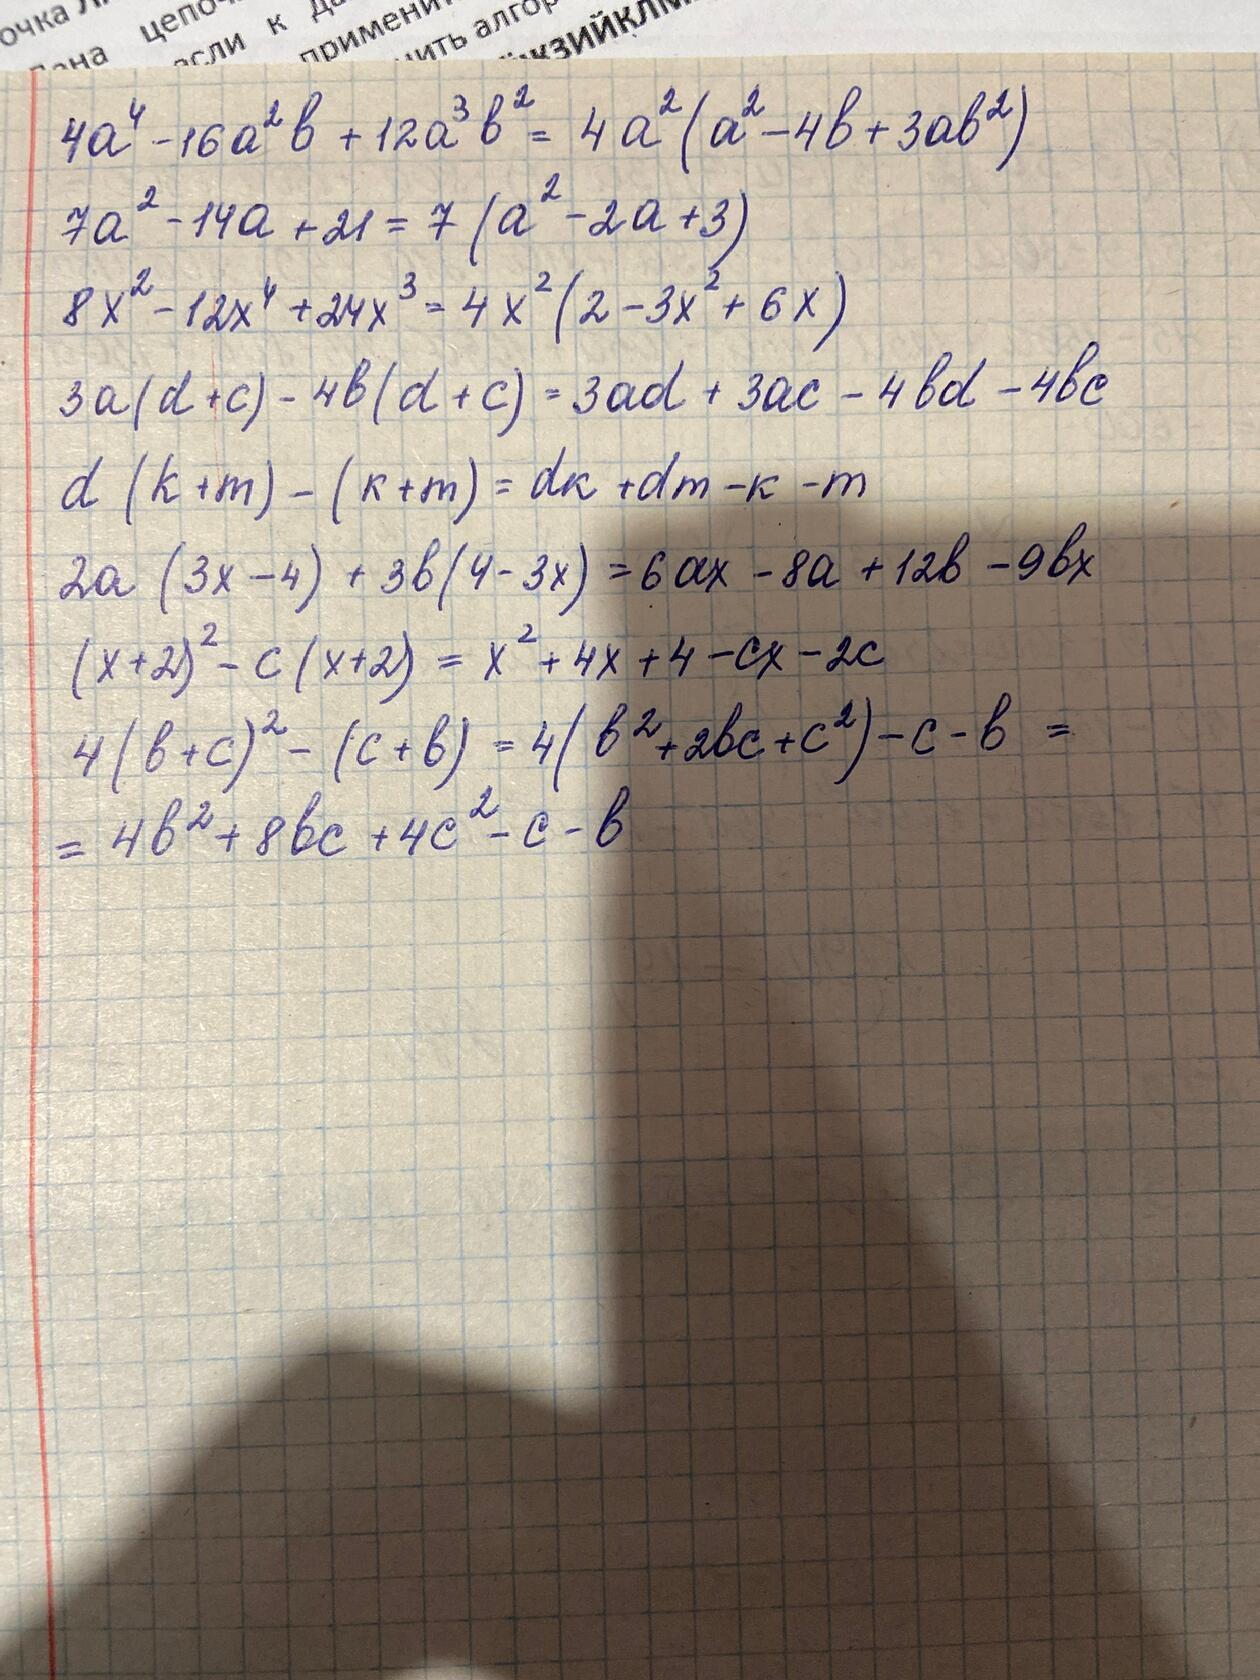 очка
цепоч
если к
применит
нить алгор
ЖЗИЙКЛМ
4a⁴ - 16a²b + 12a³b² = 4a²(a² - 4b + 3ab²)
7a² - 14a + 21 = 7(a² - 2a + 3)
8x² - 12x⁴ + 24x³ = 4x²(2 - 3x² + 6x)
3a(d+c) - 4b(d+c) = 3ad + 3ac - 4bd - 4bc
d(k+m) - (k+m) = dk + dm - k - m
2a(3x - 4) + 3b(4 - 3x) = 6ax - 8a + 12b - 9bx
(x+2)² - c(x+2) = x² + 4x + 4 - cx - 2c
4(b+c)² - (c+b) = 4(b² + 2bc + c²) - c - b =
= 4b² + 8bc + 4c² - c - b